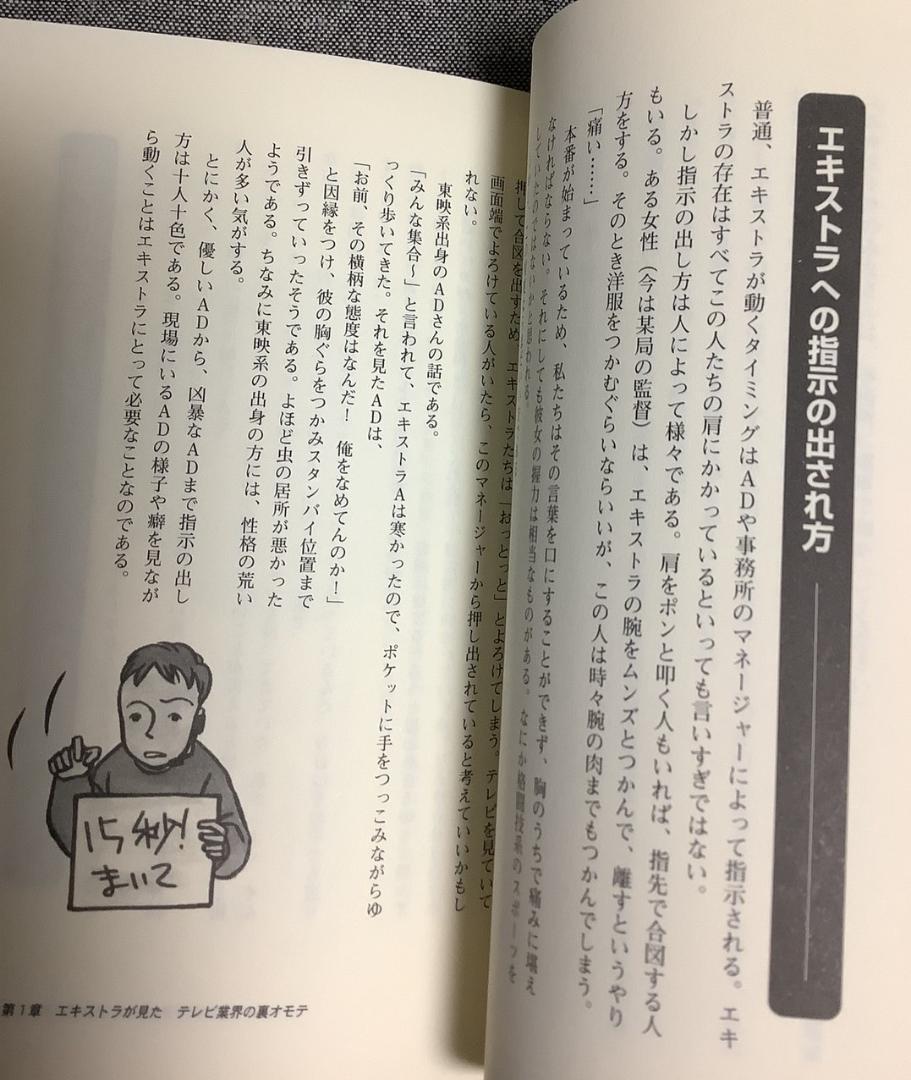 エキストラへの指示の出され方
普通、エキストラが動くタイミングはADや事務所のマネージャーによって指示される。エキ
ストラの存在はすべてこの人たちの肩にかかっているといっても言いすぎではない。
しかし指示の出し方は人によって様々である。肩をポンと叩く人もいれば、指先で合図する人
もいる。ある女性（今は某局の監督）は、エキストラの腕をムンズとつかんで、離すというやり
方をする。そのとき洋服をつかむぐらいならいいが、この人は時々腕の肉までもつかんでしまう。
「痛い……」
本番が始まっているため、私たちはその言葉を口にすることができず、胸のうちで痛みに堪え
なければならない。それにしても彼女の握力は相当なものがある。なにか格闘技系のスポーツを
していたのではないかと思われる。
押して合図を出すため、エキストラたちは「おっとっと」とよろけてしまう。テレビを見ていて
画面端でよろけている人がいたら、このマネージャーから押し出されていると考えていいかもし
れない。
東映系出身のADさんの話である。
「みんな集合〜」と言われて、エキストラAは寒かったので、ポケットに手をつっこみながらゆ
っくり歩いてきた。それを見たADは、
「お前、その横柄な態度はなんだ！　俺をなめてんのか！」
と因縁をつけ、彼の胸ぐらをつかみスタンバイ位置まで
引きずっていったそうである。よほど虫の居所が悪かった
ようである。ちなみに東映系の出身の方には、性格の荒い
人が多い気がする。
とにかく、優しいADから、凶暴なADまで指示の出し
方は十人十色である。現場にいるADの様子や癖を見なが
ら動くことはエキストラにとって必要なことなのである。
15秒!
まいて
第1章　エキストラが見た　テレビ業界の裏オモテ